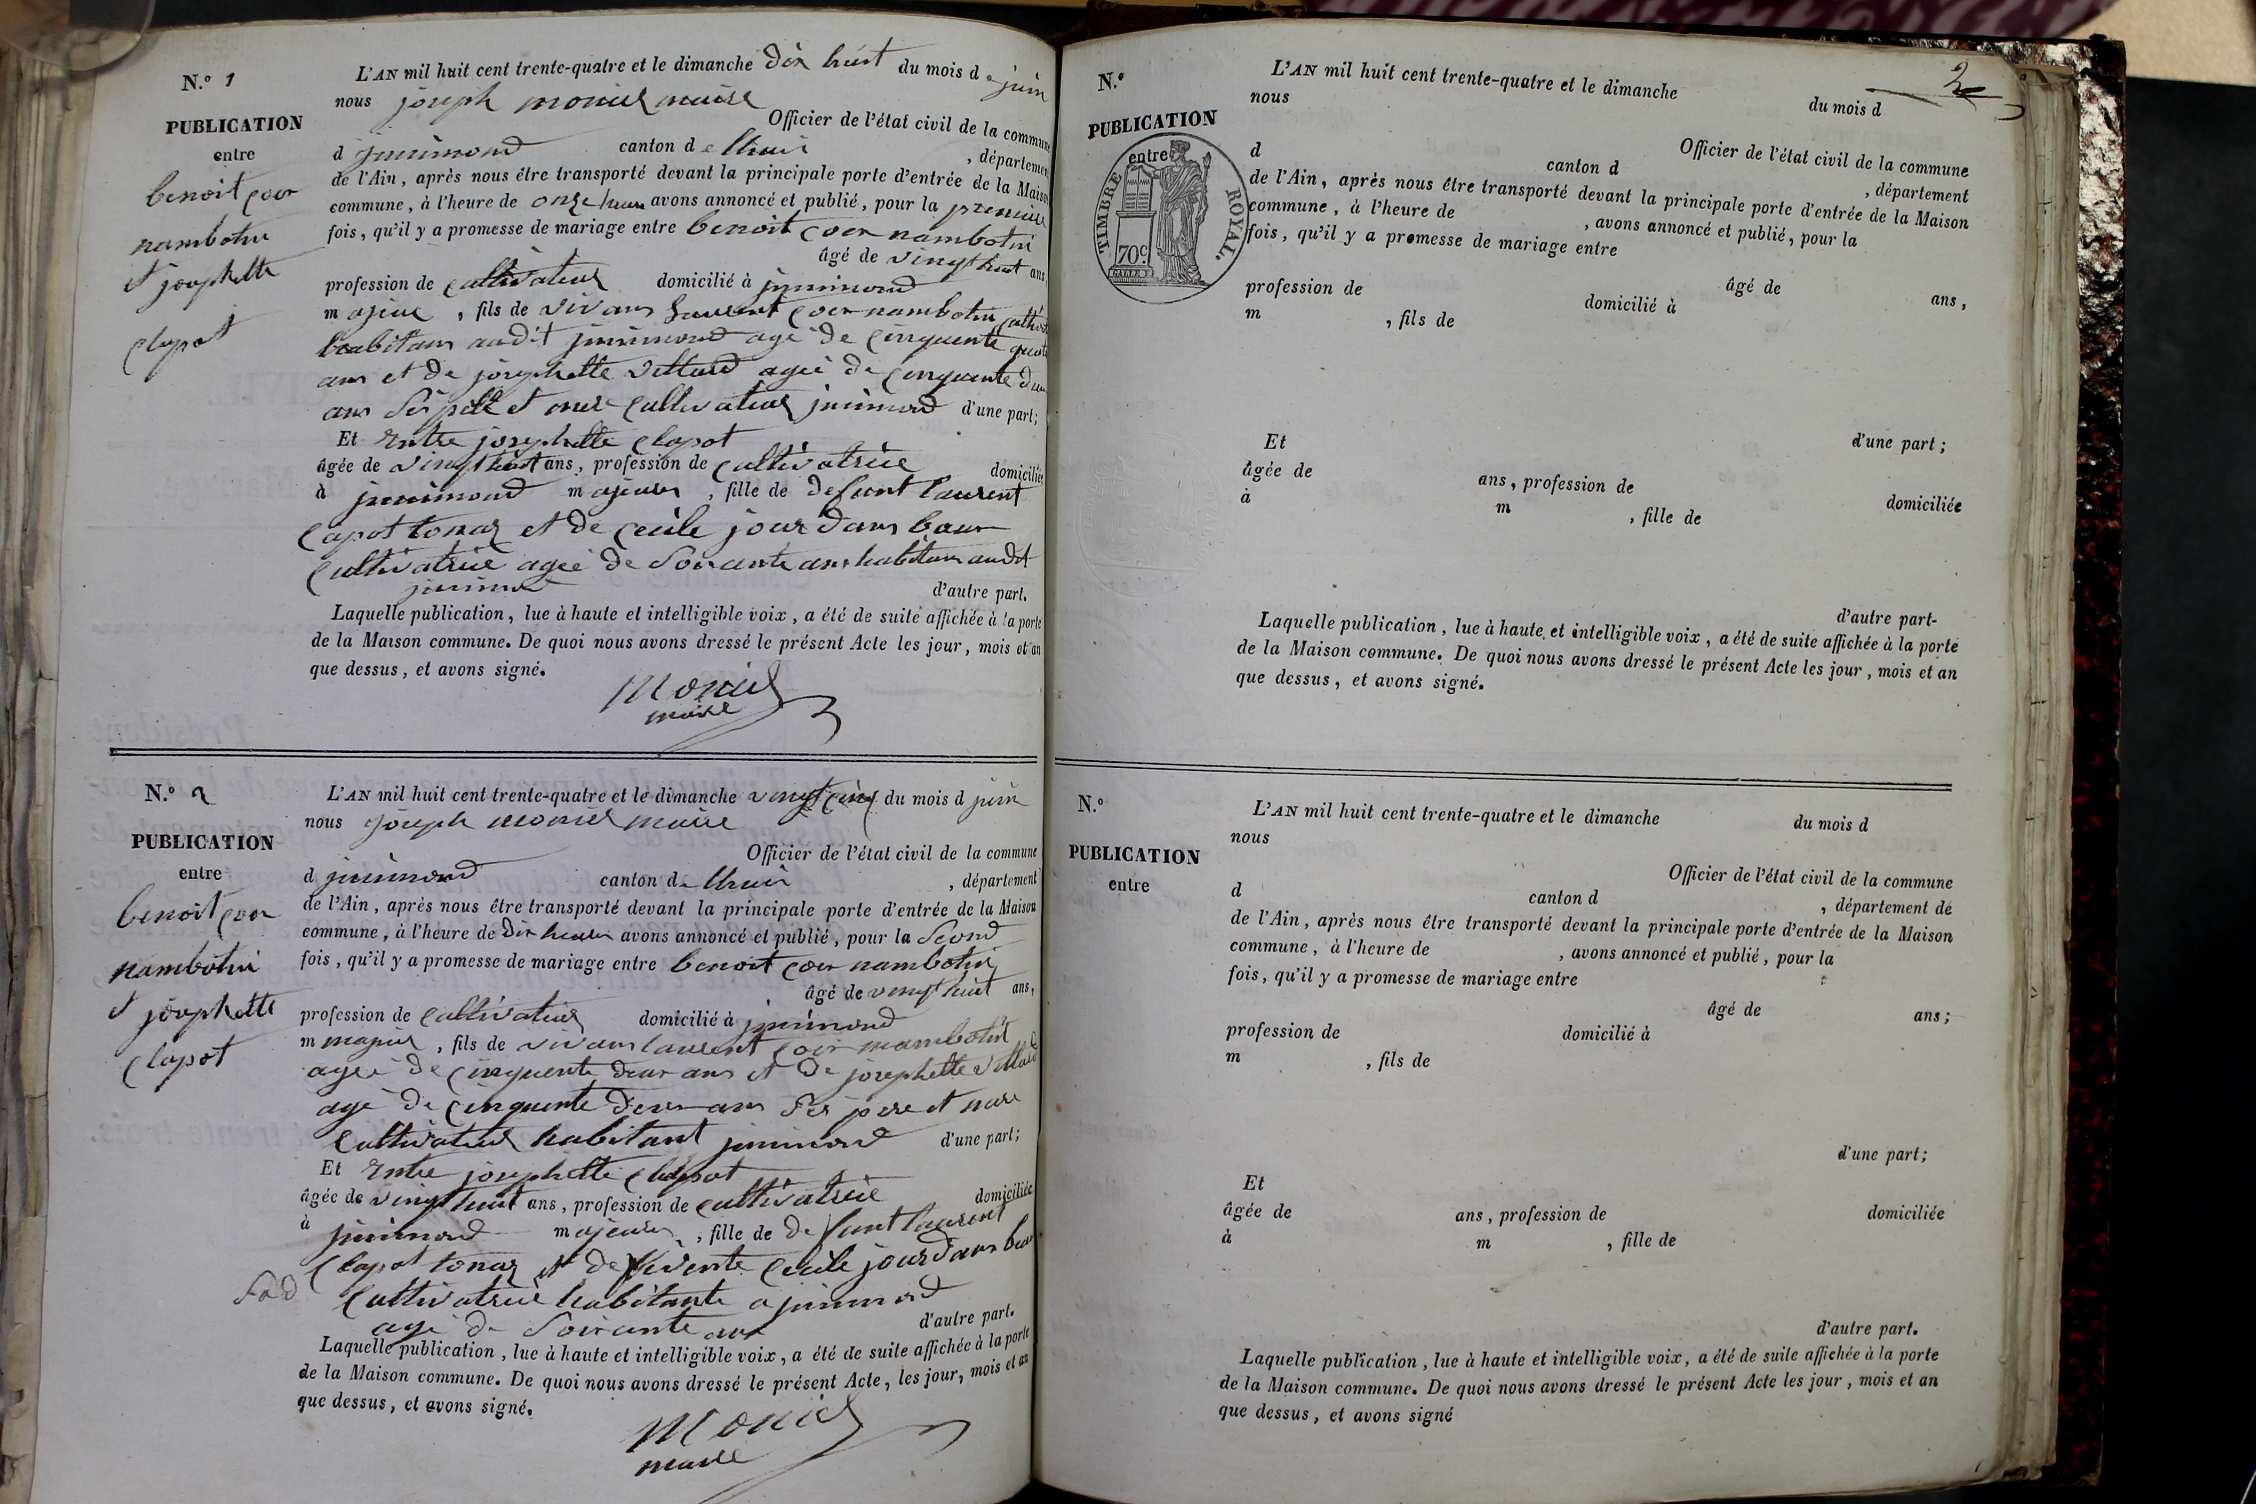 N.° 1
PUBLICATION
entre
benoit coer
nambotin
et josephette
clapot
L'AN mil huit cent trente-quatre et le dimanche dix huit du mois de juin
nous joseph monier maire
Officier de l'état civil de la commune
d jnnimond canton de lhuis , département
de l'Ain, après nous être transporté devant la principale porte d'entrée de la Maison
commune, à l'heure de onze heure avons annoncé et publié, pour la premiere
fois, qu'il y a promesse de mariage entre benoit coer nambotin
âgé de vingt huit ans
profession de cultivateur domicilié à jnnimond
majeur , fils de vivans laurent coer nambotin
habitans audit jnnimond agé de cinquante
ans et de josephette villard agée de cinquante deux
ans ses pere et mere cultivateur jnnimond d'une part;
Et entre josephette clapot
âgée de vingt huit ans, profession de cultivatrice domiciliée
à jnnimond majeure , fille de defunt laurent
clapot tonaz et de cecile jourdans baux
cultivatrice agée de soixante ans habitans audit
jnnimond d'autre part.
Laquelle publication, lue à haute et intelligible voix, a été de suite affichée à la porte
de la Maison commune. De quoi nous avons dressé le présent Acte les jour, mois et an
que dessus, et avons signé.
Monier
maire
N.° 2
PUBLICATION
entre
benoit coer
nambotin
et josephette
clapot
L'AN mil huit cent trente-quatre et le dimanche vingt cinq du mois d juin
nous joseph monier maire
Officier de l'état civil de la commune
d jnnimond canton de lhuis , département
de l'Ain, après nous être transporté devant la principale porte d'entrée de la Maison
commune, à l'heure de dix heures avons annoncé et publié, pour la second
fois, qu'il y a promesse de mariage entre benoit coer nambotin
âgé de vingt huit ans,
profession de cultivateur domicilié à jnnimond
m majeur , fils de vivans laurent coer nambotin
agée de cinquente deux ans et de josephette villard
agé de cinquente deux ans ses pere et mere
cultivateur habitant jnnimond d'une part;
Et entre josephette clapot
âgée de vingt huit ans, profession de cultivatrice domiciliée
à jnnimond majeure , fille de defunt laurent
clapot tonaz et de vivente cecile jourdans baux
cultivatrice habitante a jnnimond
agé de soixante ans d'autre part.
Laquelle publication, lue à haute et intelligible voix, a été de suite affichée à la porte
de la Maison commune. De quoi nous avons dressé le présent Acte, les jour, mois et an
que dessus, et avons signé.
Monier
maire
2
N.°
PUBLICATION
entre
TIMBRE ROYAL.
70c
L'AN mil huit cent trente-quatre et le dimanche du mois d
nous
Officier de l'état civil de la commune
d canton d , département
de l'Ain, après nous être transporté devant la principale porte d'entrée de la Maison
commune, à l'heure de , avons annoncé et publié, pour la
fois, qu'il y a promesse de mariage entre
âgé de ans,
profession de domicilié à
m , fils de
d'une part;
Et
âgée de ans, profession de domiciliée
à m , fille de
d'autre part-
Laquelle publication, lue à haute et intelligible voix, a été de suite affichée à la porte
de la Maison commune. De quoi nous avons dressé le présent Acte les jour, mois et an
que dessus, et avons signé.
N.°
PUBLICATION
entre
L'AN mil huit cent trente-quatre et le dimanche du mois d
nous
Officier de l'état civil de la commune
d canton d , département de
de l'Ain, après nous être transporté devant la principale porte d'entrée de la Maison
commune, à l'heure de , avons annoncé et publié, pour la
fois, qu'il y a promesse de mariage entre
âgé de ans;
profession de domicilié à
m , fils de
d'une part;
Et
âgée de ans, profession de domiciliée
à m , fille de
d'autre part.
Laquelle publication, lue à haute et intelligible voix, a été de suite affichée à la porte
de la Maison commune. De quoi nous avons dressé le présent Acte les jour, mois et an
que dessus, et avons signé